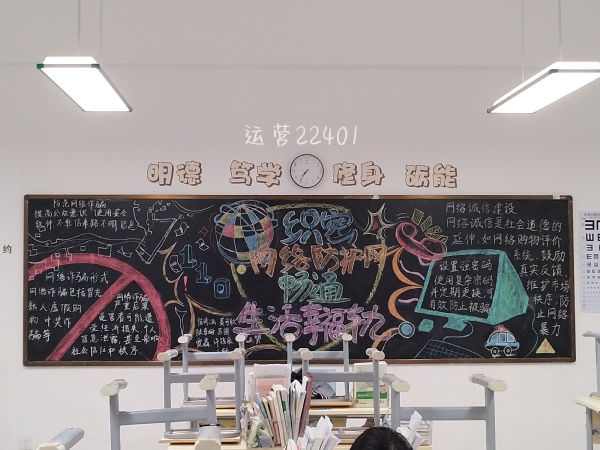 运营22401
明德 笃学 修身 砺能
防范网络诈骗
提高公众意识 使用安全
软件 不点击来路不明信息
网络诈骗形式
网络诈骗包括冒充
熟人 虚假购
物 刷单诈
骗等
网络诈骗
严重后果
受害者可能遭
受经济损失 个人
信息泄露,甚至影响
社会防化和秩序
110
织密
网络防护网
畅通
生活幸福轨
网络诚信建设
网络诚信是社会道德的
延伸,如网络购物评价
系统 鼓励
真实反馈
维护市场
秩序,防
止网络
暴力
设置强密码
使用复杂密码
并定期更换 可
有效防止被骗
约